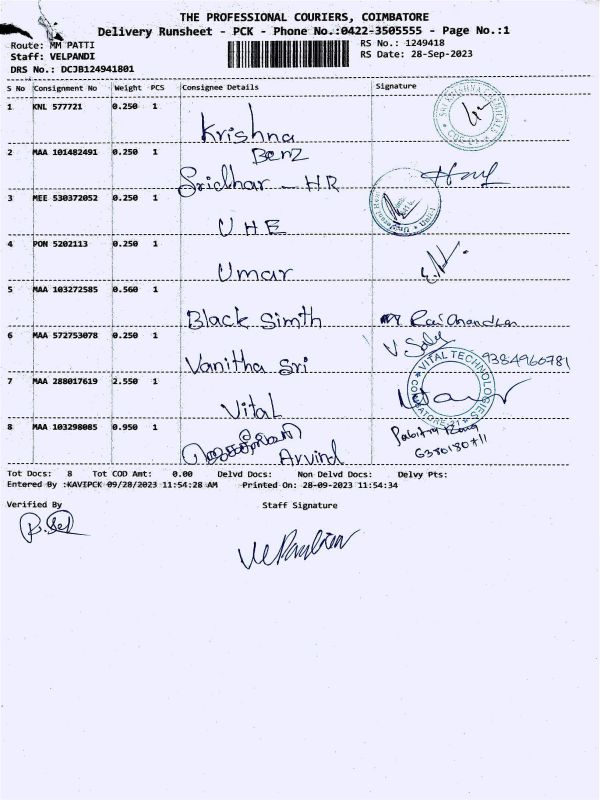 THE PROFESSIONAL COURIERS, COIMBATORE
Delivery Runsheet - PCK - Phone No.:0422-3505555 - Page No.:1
Route: MM PATTI RS No.: 1249418
Staff: VELPANDI RS Date: 28-Sep-2023
DRS No.: DCJB124941801
S No Consignment No Weight PCS Consignee Details Signature
1 KNL 577721 0.250 1 Krishna
2 MAA 101482491 0.250 1 Benz
Sridhar - HR
3 MEE 530372052 0.250 1 UHE
4 PON 5202113 0.250 1 Umar
5 MAA 103272585 0.560 1 Black Simth
6 MAA 572753078 0.250 1 Vanitha Sri 9384960781
7 MAA 288017619 2.550 1 Vital VITAL TECHNOLOGIES
8 MAA 103298085 0.950 1 Arvind 6380180711
Tot Docs: 8 Tot COD Amt: 0.00 Delvd Docs: Non Delvd Docs: Delvy Pts:
Entered By :KAVIPCK 09/28/2023 11:54:28 AM Printed On: 28-09-2023 11:54:34
Verified By Staff Signature